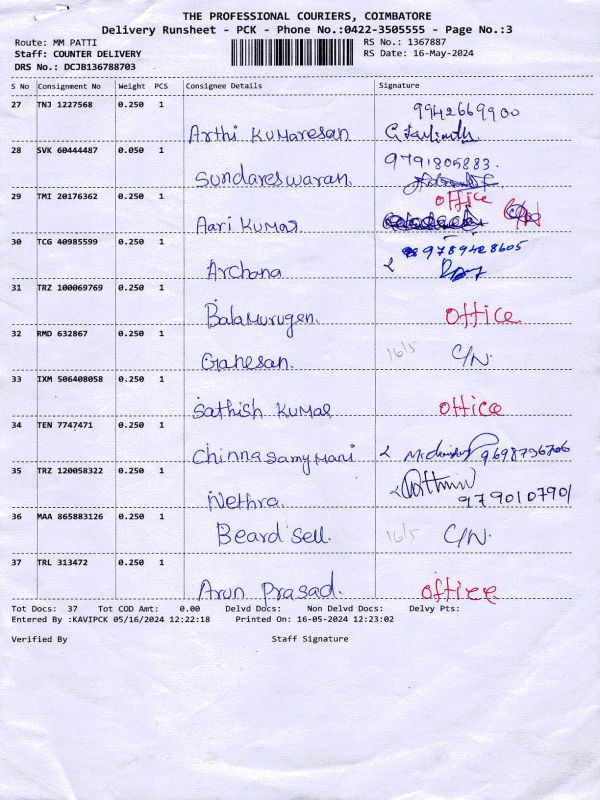 THE PROFESSIONAL COURIERS, COIMBATORE
Delivery Runsheet - PCK - Phone No.:0422-3505555 - Page No.:3
Route: MM PATTI RS No.: 1367887
Staff: COUNTER DELIVERY RS Date: 16-May-2024
DRS No.: DCJB136788703
S No Consignment No Weight PCS Consignee Details Signature
27 TNJ 1227568 0.250 1 9942669900
Arthi Kumaresan
28 SVK 60444487 0.050 1 9791805883.
Sundareswaran
29 TMI 20176362 0.250 1 office
Aari Kumar
30 TCG 40985599 0.250 1 9789428605
Archana
31 TRZ 100069769 0.250 1
BalaMurugen. office
32 RMD 632867 0.250 1 16/5 C/N.
Ganesan.
33 IXM 506408058 0.250 1
Sathish Kumar office
34 TEN 7747471 0.250 1
Chinnasamy Mani
35 TRZ 120058322 0.250 1
Nethra. 9790107901
36 MAA 865883126 0.250 1
Beard Sell. 16/5 C/N.
37 TRL 313472 0.250 1
Arun Prasad. office
Tot Docs: 37 Tot COD Amt: 0.00 Delvd Docs: Non Delvd Docs: Delvy Pts:
Entered By :KAVIPCK 05/16/2024 12:22:18 Printed On: 16-05-2024 12:23:02
Verified By Staff Signature